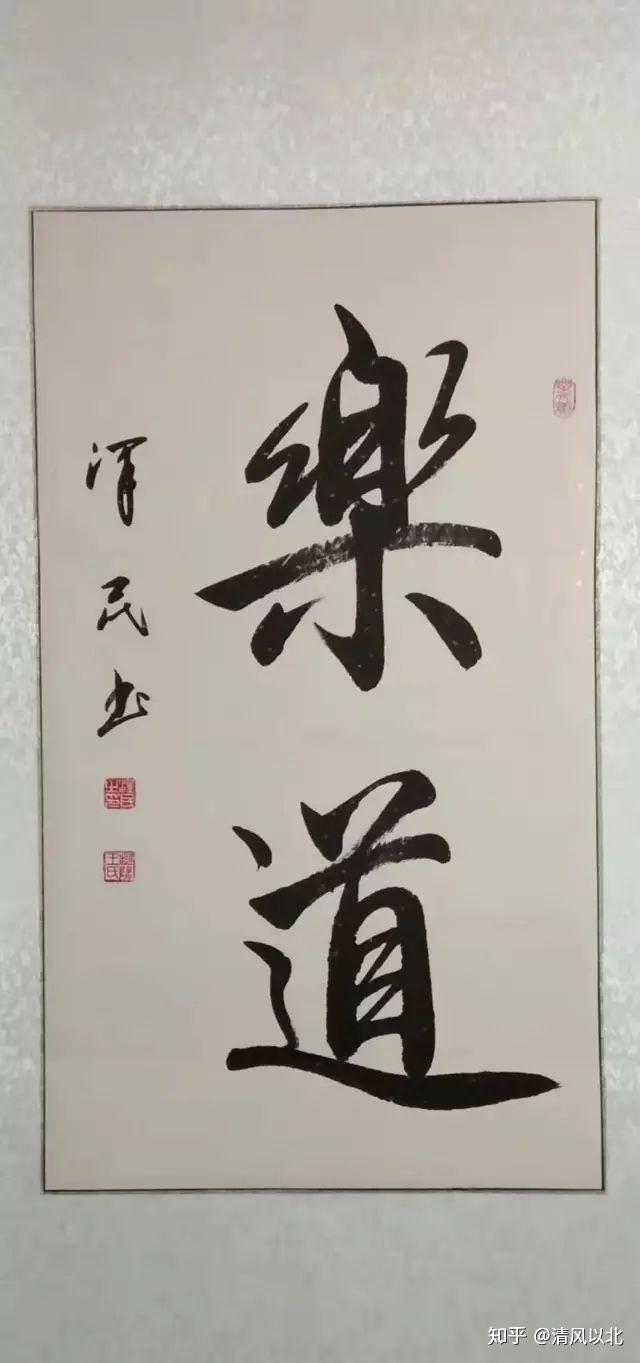 樂道
泽民书
知乎 @清风以北